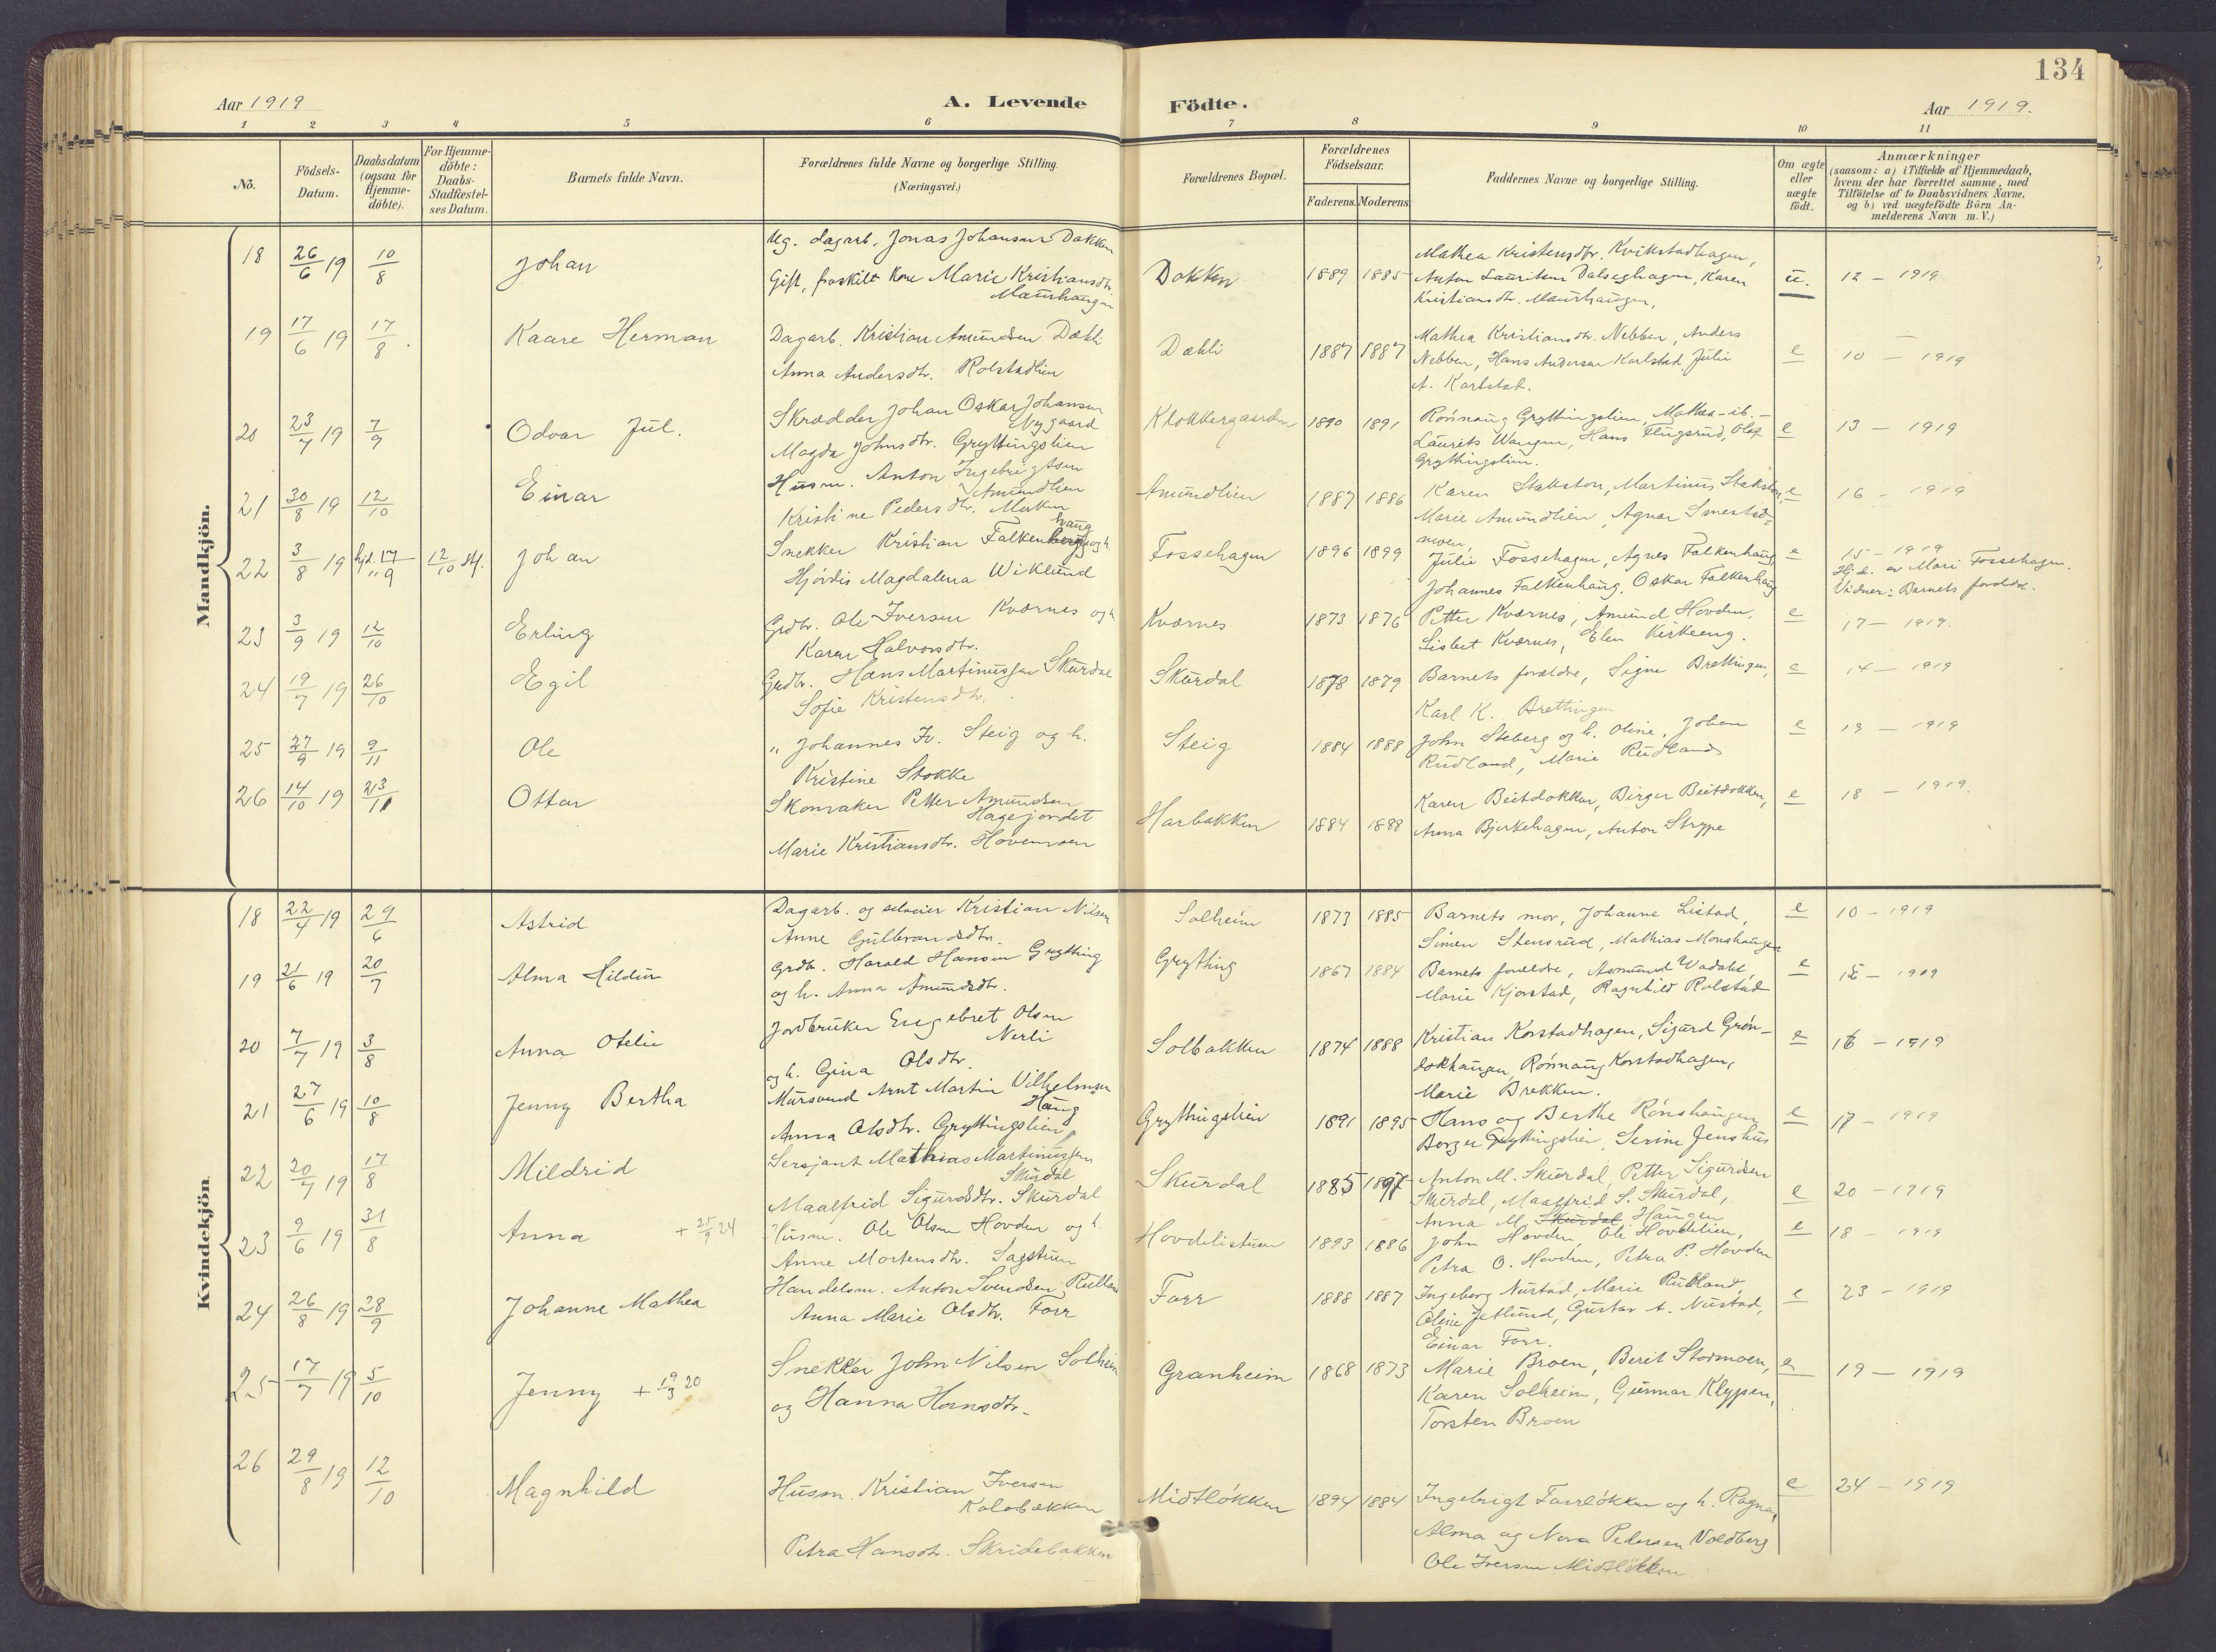 134
Aar 1919
A. Levende
Födte.
Aar 1919.
1 2 3 4 5 6 7 8 9 10 11
No.
Födsels-
Datum.
Daabsdatum
(ogsaa for
Hjemme-
döbte).
For Hjemme-
döbte:
Daabs-
Stadfæstel-
ses Datum.
Barnets fulde Navn.
Forældrenes fulde Navne og borgerlige Stilling.
(Næringsvei.)
Forældrenes Bopæl.
Forældrenes
Födselsaar.
Faderens.
Moderens.
Faddernes Navne og borgerlige Stilling.
Om ægte
eller
uægte
födt.
Anmærkninger
(saasom: a) i Tilfælde af Hjemmedaab,
hvem der har forrettet samme, med
Tilföielse af to Daabsvidners Navne,
og b) ved uægtefödte Börn An-
melderens Navn m.V.)
Mandkjön.
18 26/6 19 10/8 Johan
Ug. dagarb. Jonas Johansen Dokken
Gift, fraskilt Kone Marie Kristiansdtr.
Maurhaugen
Dokken 1889 1885
Mathea Kristensdtr. Kvikstadhagen,
Anton Lauritsen Dalseghagen, Karen
Kristiansdtr. Maurhaugen,
u. 12 - 1919
19 17/6 19 17/8. Kaare Herman
Dagarb. Kristian Amundsen Dæhli
Anna Andersdtr. Rolstadlien
Dæhli 1887 1887
Mathea Kristiansdtr. Nebben, Anders
Nebben, Hans Andersen Karlstad, Julie
A. Karlstad.
e 10 - 1919
20 23/7 19 7/9 Odvar Jul.
Skrædder Johan Oskar Johansen
Nygaard
Magda Johnsdtr. Gryttingslien
Klokkergaarden 1890 1891
Rønnaug Gryttingslien, Mathea -ib.-
Laurits Wangen, Hans Flugsrud, Olaf
Gryttingslien.
e 13 - 1919
21 30/8 19 12/10 Einar
Husm. Anton Ingebrigtsen
Amundlien
Kristine Pedersdtr. Moken
Amundlien 1887 1886
Karen Stakston, Martinus Stakston,
Marie Amundlien, Agnar Smestad-
moen
e 16 - 1919
22 3/8 19 hjd. 17/9 12/10 stf. Johan
Snekker Kristian Falkenhaug og h.
Hjördis Magdalena Wiklund
Fossehagen 1896 1899
Julie Fossehagen, Agnes Falkenhaug,
Johannes Falkenhaug, Oskar Falkenhaug
e 15 - 1919
Hj.d. av Mari Fossehagen.
Vidner: Barnets forældre.
23 3/9 19 12/10 Erling
Grdbr. Ole Iversen Kværnes og h.
Karen Halvorsdtr.
Kværnes 1873 1876
Petter Kværnes, Amund Hovden,
Lisbet Kværnes, Elen Kirkeeng.
e 17 - 1919.
24 19/7 19 26/10 Egil
Grdbr. Hans Martinussen Skurdal
Sofie Kristensdtr.
Skurdal 1878 1879
Barnets forældre, Signe Brettingen,
Karl K. Brettingen
e 14 - 1919
25 27/9 19 9/11 Ole
" Johannes Iv. Steig og h.
Kristine Stokke
Steig 1884 1888
John Steberg og h. Oline, Johan
Rudland, Marie Rudland
e 19 - 1919
26 14/10 19 23/11 Ottar
Skomaker Petter Amundsen
Hagejordet
Marie Kristiansdtr. Hovemoen
Harbakken 1884 1888
Karen Beitdokken, Birger Beitdokken,
Anna Bjerkehagen, Anton Strype
e 18 - 1919.
Kvindekjön
18 22/4 19 29/6 Astrid
Dagarb. og selveier Kristian Nilsen
Anne Gulbrandsdtr.
Solheim 1873 1885
Barnets mor, Johanne Listad,
Simen Stensrud, Mathias Monshaugen
e 10 - 1919
19 21/6 19 20/7 Alma Hildur
Grdbr. Harald Hansen Grytting
og h. Anna Amundsdtr.
Grytting 1867 1884
Barnets forældre, Asmund Vadahl,
Marie Kjorstad, Ragnhild Rolstad
e 15 - 1919
20 7/7 19 3/8 Anna Otelie
Jordbruker Engebret Olsen
Nerli
og h. Gina Olsdtr.
Solbakken 1874 1888
Kristian Korstadhagen, Sigurd Grøn-
dokhaugen, Rønnaug Korstadhagen,
Marie Brekken.
e 16 - 1919
21 27/6 19 10/8 Jenny Bertha
Mursvend Arnt Martin Vilhelmsen
Haug
Anna Olsdtr. Gryttingslien
Gryttingslien 1891 1895
Hans og Berthe Rønshaugen
Borger Gryttingslien, Serine Jenshus
e 17 - 1919
22 20/7 19 17/8 Mildrid
Sersjant Mathias Martinussen
Skurdal
Maalfrid Sigurdsdtr. Skurdal
Skurdal 1885 1897
Anton M. Skurdal, Petter Sigurdsen
Skurdal, Maalfrid S. Skurdal,
Anna M. Skurdal Haugen
e 20 - 1919
23 9/6 19 31/8 Anna + 25/9 24
Husm. Ole Olsen Hovden og h.
Anne Mortensdtr. Sagstuen
Hovdelistuen 1893 1886
John Hovden, Ole Hovdelien,
Petra O. Hovden, Petra P. Hovden
e 18 - 1919
24 26/8 19 28/9 Johanne Mathea
Handelsm. Anton Svendsen Rulland
Anna Marie Olsdtr. Forr
Forr 1888 1887
Ingeborg Nustad, Marie Rudland,
Oline Jetlund, Gustav A. Nustad,
Einar Forr.
e 23 - 1919
25 17/7 19 5/10 Jenny + 19/3 20
Snekker John Nilsen Solheim
og Hanna Hansdtr.
Granheim 1868 1873
Marie Broen, Berit Stormoen,
Karen Solheim, Gunnar Klypen,
Torsten Broen
e 19 - 1919
26 29/8 19 12/10 Magnhild
Husm. Kristian Iversen
Kolobækken
Petra Hansdtr. Skridebakken
Midtløkken 1894 1884
Ingebrigt Forrløkken og h. Ragna,
Alma og Nora Pedersen Voldberg
Ole Iversen Midtløkken
e 24 - 1919